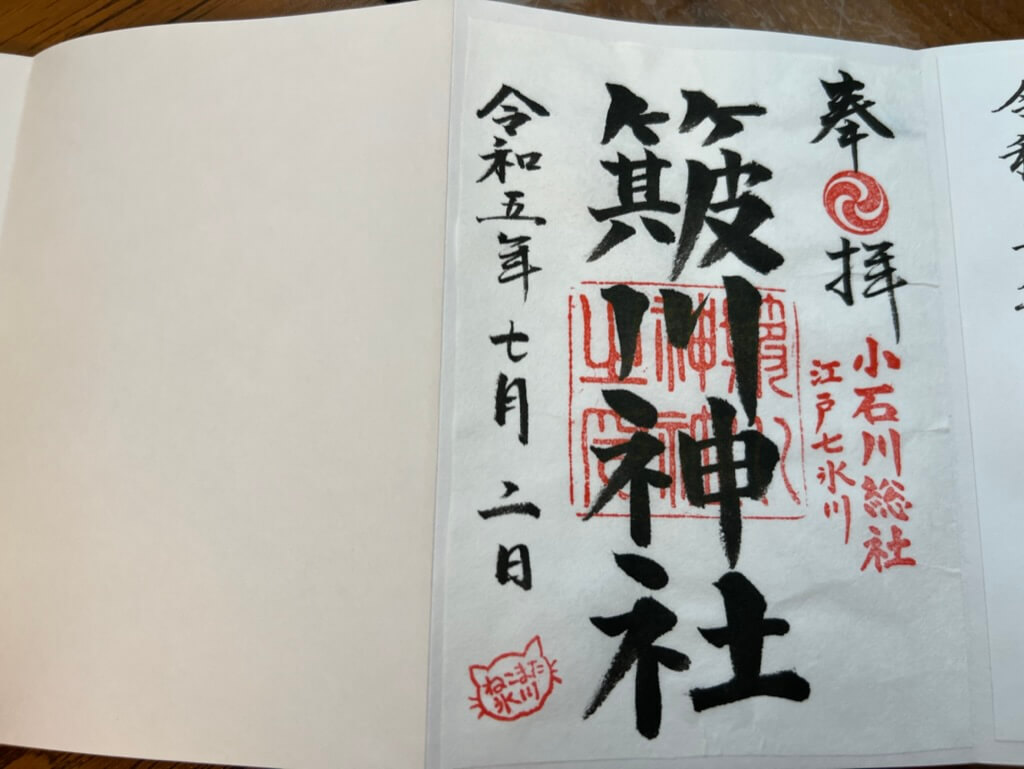 奉拝
小石川総社
江戸七氷川
簸川神社
簸川
神社
之印
令和五年七月二日
ねこまた
氷川